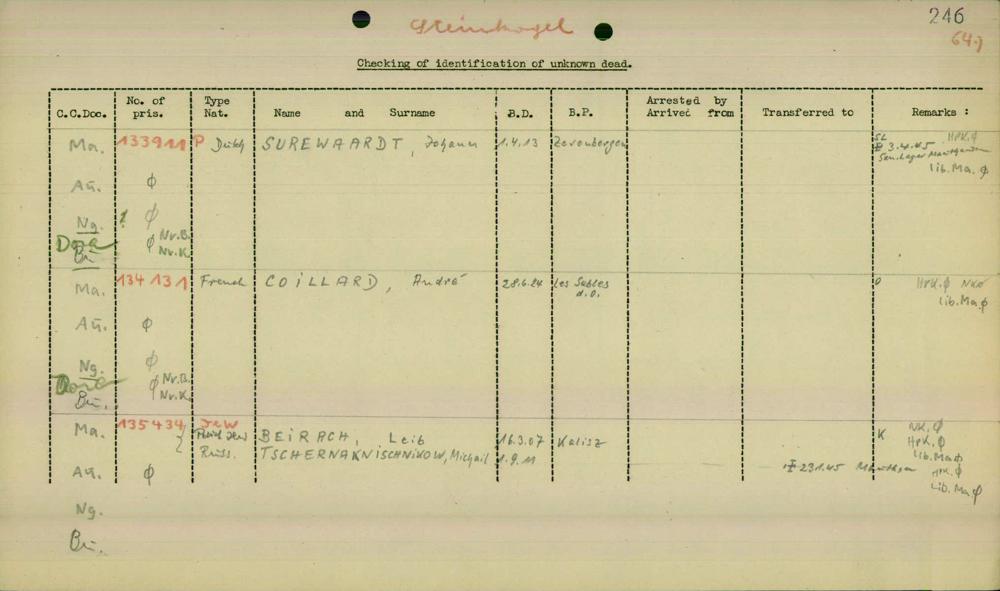 Steinkogel
246
64.)
Checking of identification of unknown dead.
C.C.Doc. No. of pris. Type Nat. Name and Surname B.D. B.P. Arrested by Arrived from Transferred to Remarks :
Ma. 133911 P Dutch SUREWAARDT, Johann 1.4.13 Zevenbergen SL HPK.φ
3.4.45
lib. Ma. φ
Au. φ
Ng. φ
Dora φ Nr.B.
Bu. Nr.K.
Ma. 134131 French COILLARD, André 28.6.24 Les Sables d.O. HPK.φ
lib. Ma.φ
Au. φ
Ng. φ
Dora φ Nr.B.
Bu. Nr.K.
Ma. 135434 Jew
BEIRACH, Leib 16.3.07 Kalisz K NK.φ
HPK.φ
Russ. TSCHERNAKNISCHNIKOW, Michail 1.9.11 lib. Ma φ
Au. φ HPK.φ
lib. Ma φ
Ng.
Bu.